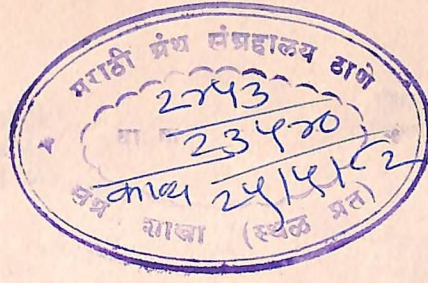 मराठी ग्रंथ संग्रहालय ठाणे
२७५३
काव्य २५/५/८२
शाखा (स्थळ प्रत)